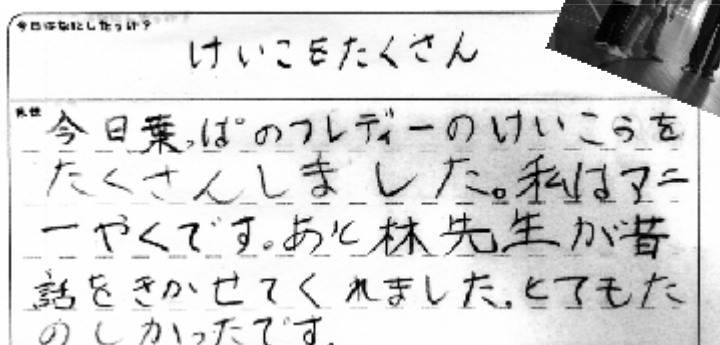 今日はなにしたっけ?
けいこをたくさん
感想
今日葉っぱのフレディーのけいこうを
たくさんしました。私はマニ
ーやくです。あと林先生が昔
話をきかせてくれました。とてもた
のしかったです。